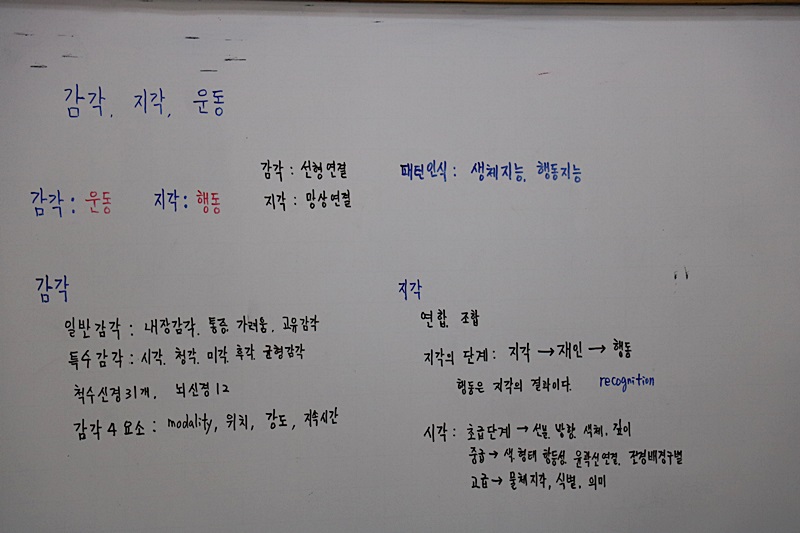 감각, 지각, 운동
감각 : 선형연결
패턴인식 : 생체지능, 행동지능
감각 : 운동 지각 : 행동
지각 : 망상연결
감각
일반감각 : 내장감각, 통증, 가려움, 고유감각
특수감각 : 시각, 청각, 미각, 후각, 균형감각
척수신경 31개, 뇌신경 12
감각 4 요소 : modality, 위치, 강도, 지속시간
지각
연합, 조합
지각의 단계 : 지각 → 재인 → 행동
행동은 지각의 결과이다. recognition
시각 : 초급단계 → 선분, 방향, 색체, 깊이
중급 → 색, 형태 항등성, 윤곽선연결, 전경배경구별
고급 → 물체지각, 식별, 의미